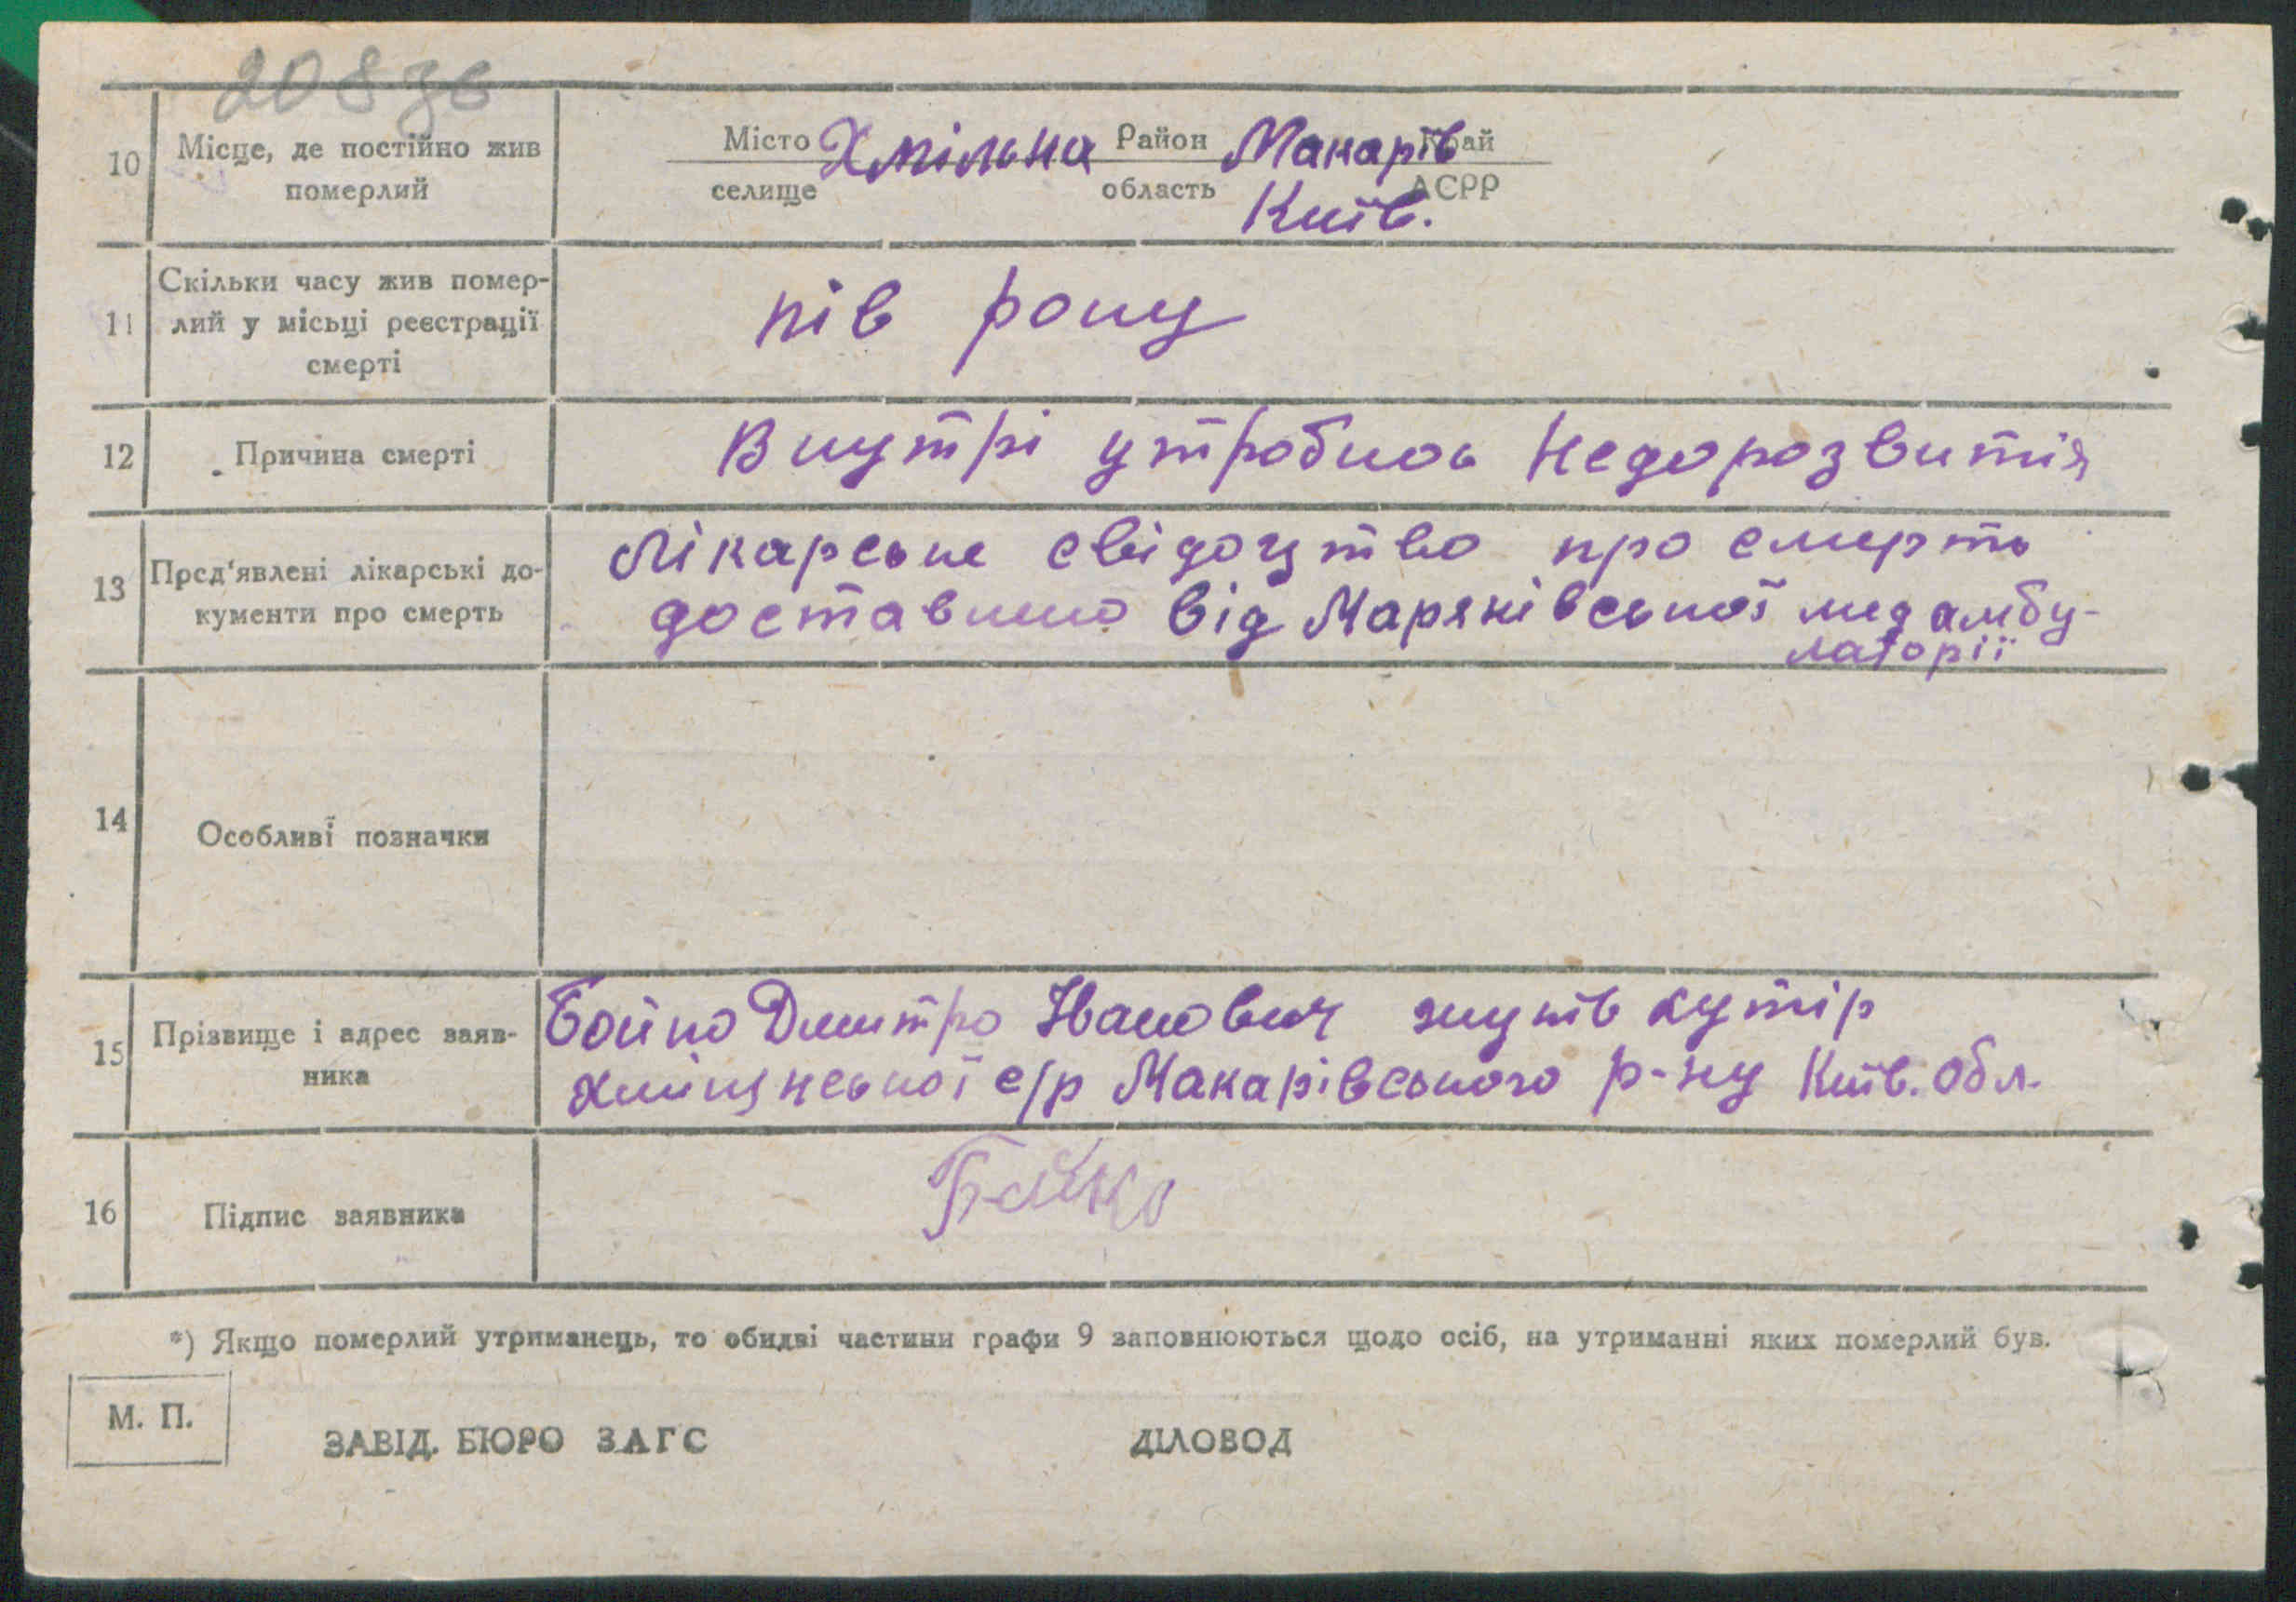 208зв
10 Місце, де постійно жив померлий
Місто Хмільна Район Макарів Край
селище область Київ. АСРР
11 Скільки часу жив помер-
лий у місьці реєстрації
смерті
пів року
12 Причина смерті
Внутрі утробноє Недорозвитія
13 Пред'явлені лікарські до-
кументи про смерть
Лікарське свідоцтво про смерть
доставлено від Мар'янівської медамбу-
латорії
14 Особливі позначки
15 Прізвище і адрес заяв-
ника
Бойко Дмитро Іванович хутір
с/р Макарівського р-ну Київ. обл.
16 Підпис заявника
Бойко
*) Якщо померлий утриманець, то обидві частини графи 9 заповнюються щодо осіб, на утриманні яких померлий був.
М. П.
ЗАВІД. БЮРО ЗАГС ДІЛОВОД